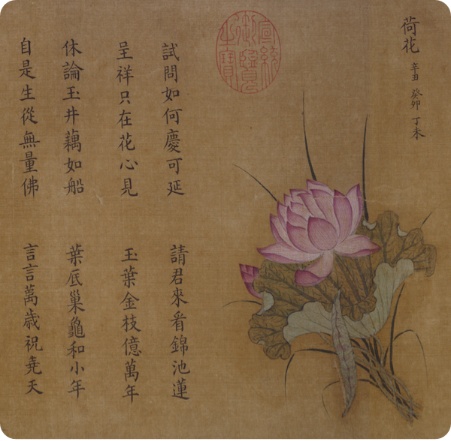 荷花 癸卯 丁未
宣統御覽之寶
試問如何慶可延 請君來看錦池蓮
呈祥只在花心見 玉葉金枝億萬年
休論玉井藕如船 葉底巢龜和小年
自是生從無量佛 言言萬歲祝堯天